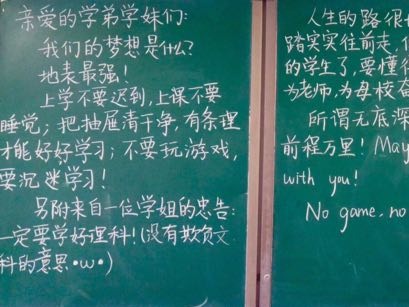 亲爱的学弟学妹们:
我们的梦想是什么?
地表最强!
上学不要迟到,上课不要
睡觉;把抽屉清干净,有条理
才能好好学习;不要玩游戏,
要沉迷学习!
另附来自一位学姐的忠告:
一定要学好理科!(没有欺负文
科的意思·w·)
人生的路很
踏实实往前走,
的学生了,要懂得
为老师,为母校奋
所谓无底深
前程万里! May
with you!
No game, no